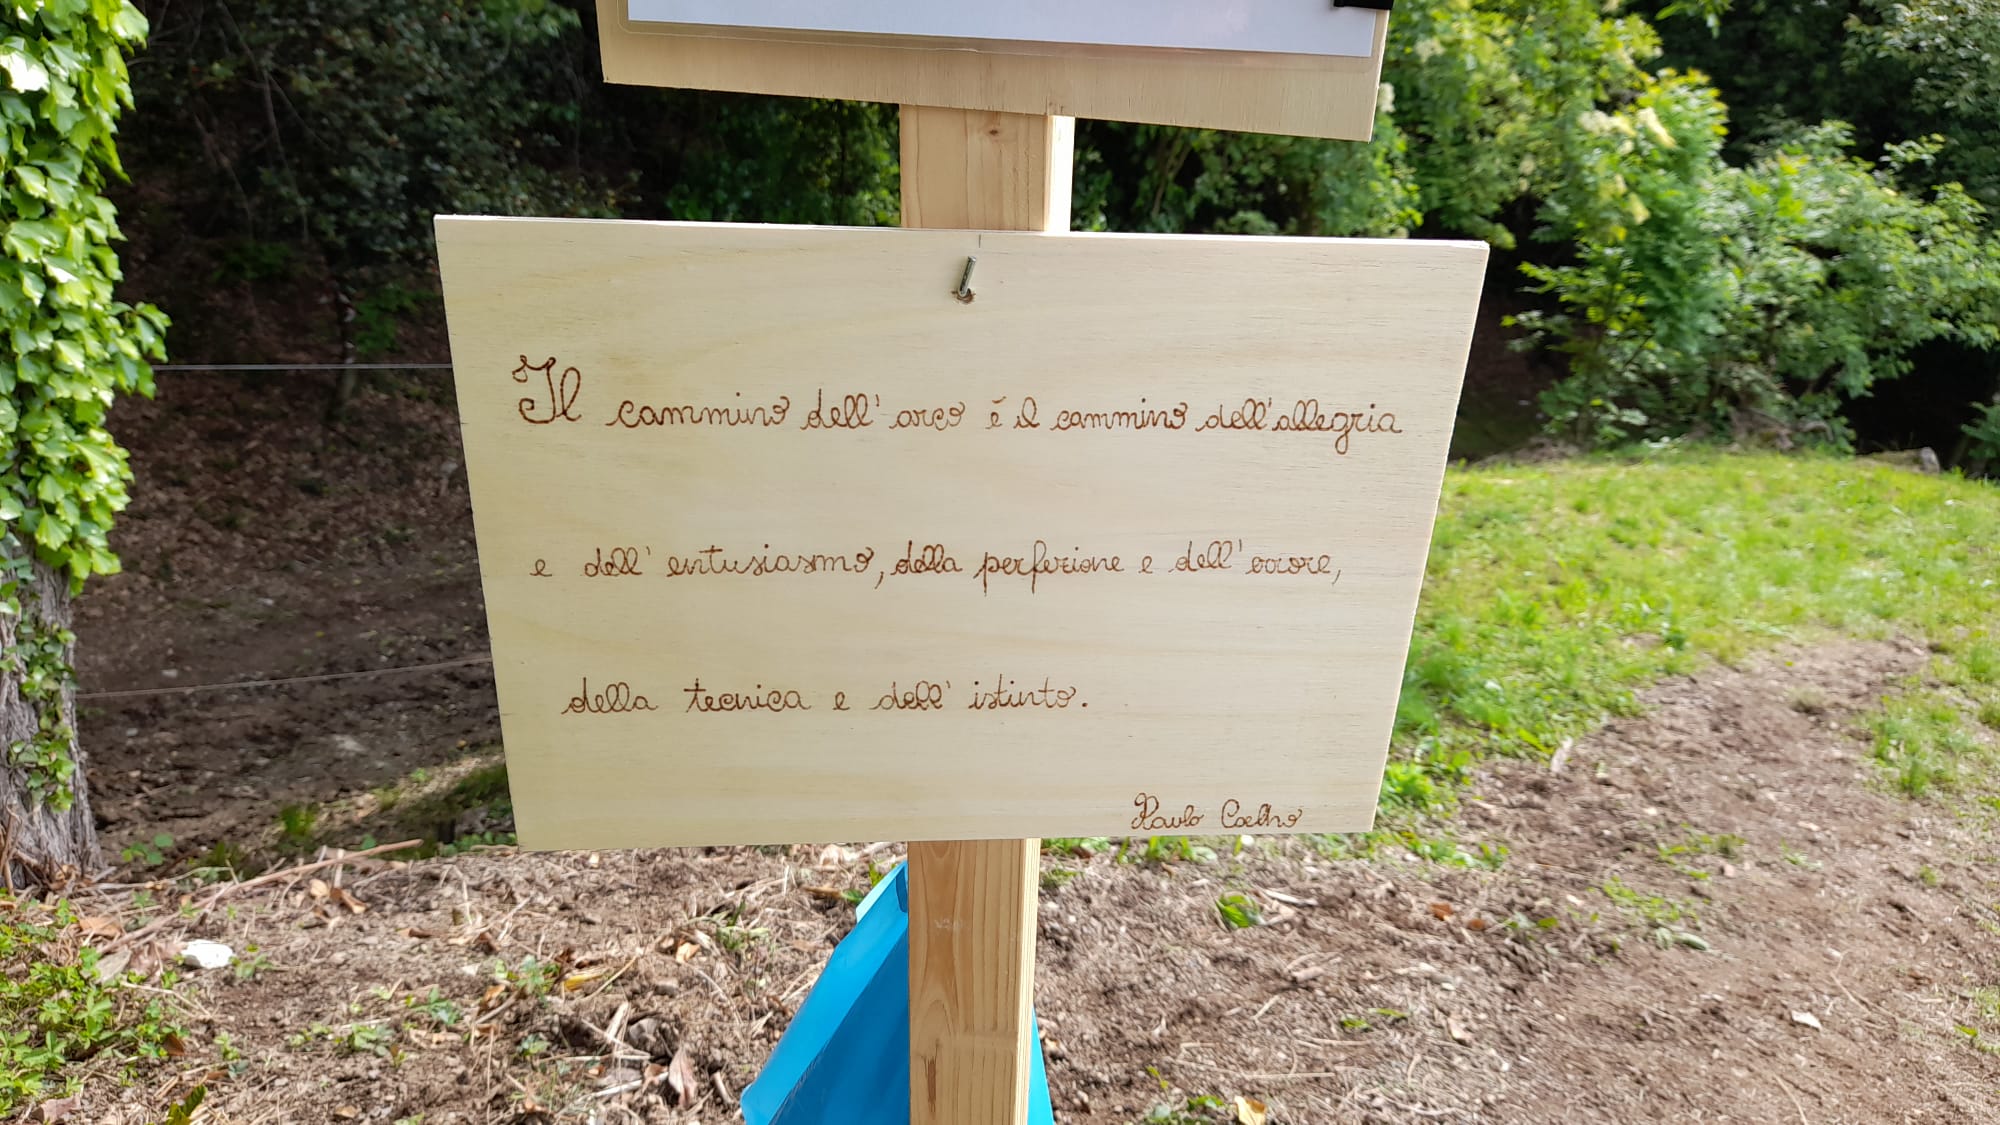 Il cammino dell'arco é il cammino dell'allegria
e dell'entusiasmo, della perfezione e dell'errore,
della tecnica e dell'istinto.
Paulo Coelho